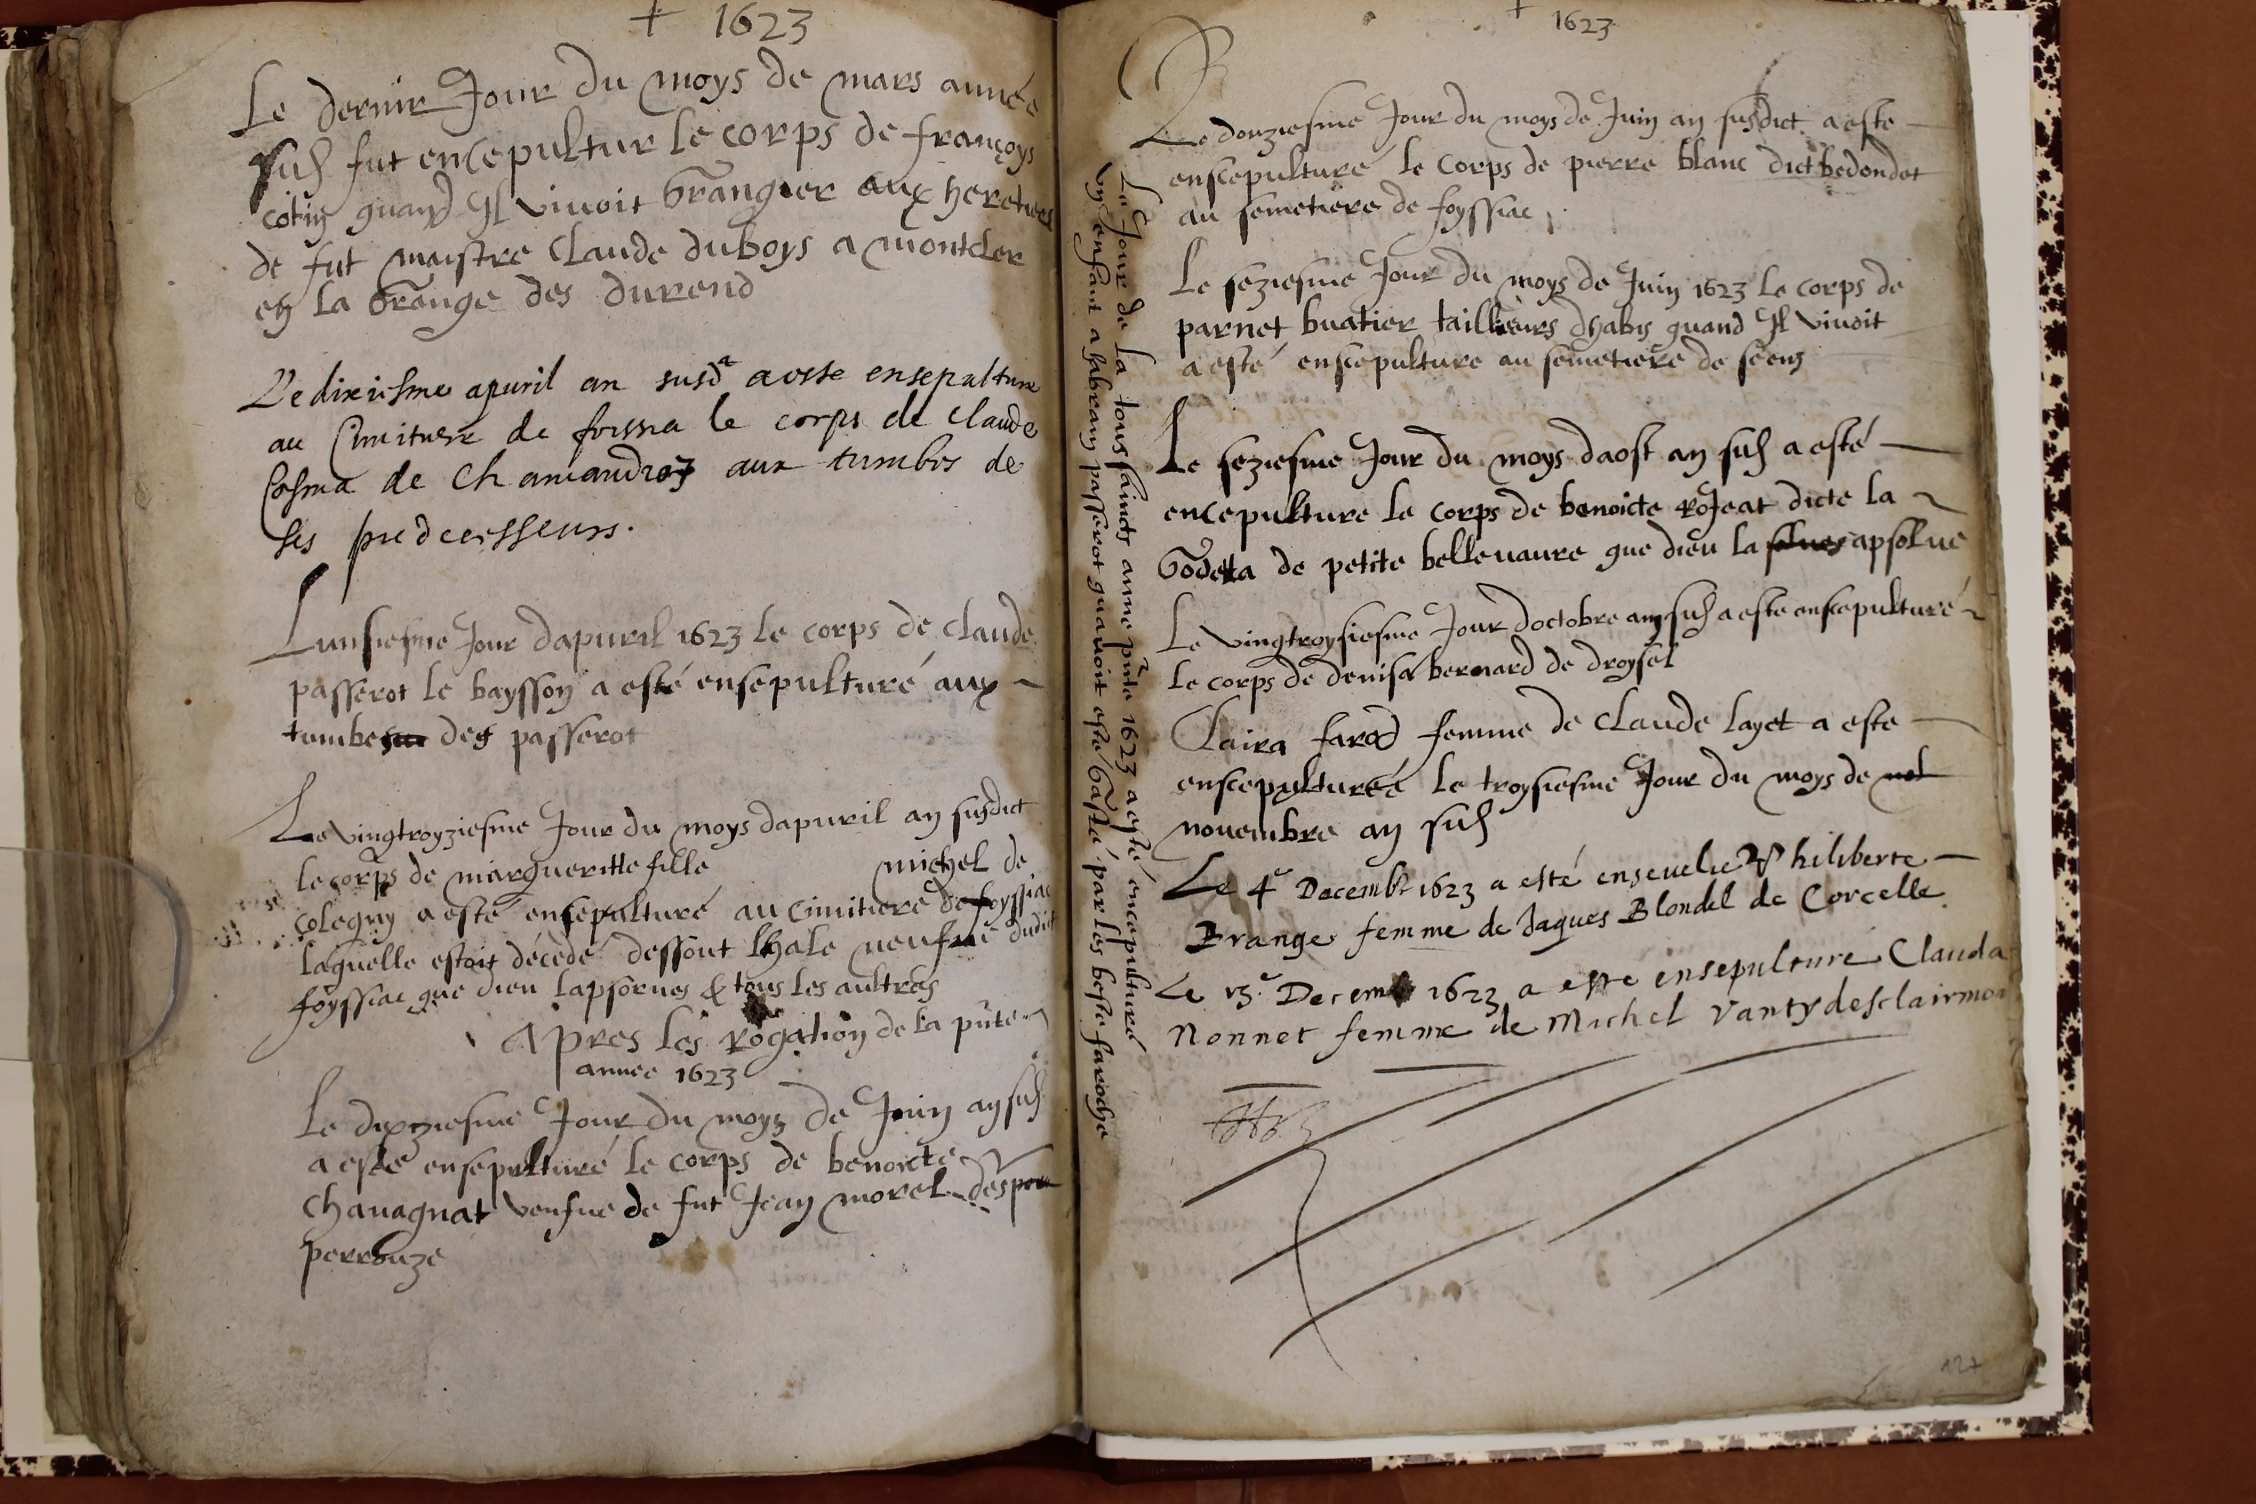 + 1623
Le dernir Jour du moys de mars année
sus fut encepultur le corps de françoys
cotin quand Il vivoit Grangier aux heretiers
de fut maistre Claude duboys a montcler
en la Grange des durend
Le dixiesme apuril an susd aeste ensepulture
au Cimitiere de foissia le corps de Claude
Cosma de Chamandrez aux tumbes de
ses predecesseurs.
Lunsiesme Jour dapuril 1623 le corps de claude
passerot le baysson a esté ensepulturé aux
tumbes des passerot
Le vingtroyziesme Jour du moys dapuril an susdict
le corps de margueritte fille michel de
colegny a esté ensepulturé au cimitiere de foyssiac
laquelle estoit décédé dessout lhale neufve dudit
foyssiac que dieu lapsorues & tous les aultres
Apres les Rogation de la pnte
annee 1623
Le dixziesme Jour du moys de Juin an sus
a esté ensepulturé le corps de benoicte
Chavagnat veufve de fut Jean morel
perrouze
+ 1623
Le douziesme Jour du moys de Juin an susdict a este
enscepulturé le corps de pierre blanc dict bedondet
au semetiere de foyssiac
Le seziesme Jour du moys de Juin 1623 le corps de
parnet buatier tailleurs dhabis quand Il vivoit
a esté enscepulture au semetiere de seens
Le seziesme Jour du moys daost an sus a esté
encepulture le corps de benoicte Rojeat dicte la
Godetta de petite bellevavre que dieu la apsolue
Le vingtroysiesme Jour doctobre an sus a este enscepulturé
le corps de denisa bernard de droysel
Claira farod femme de claude layet a este
enscepulturéé le troysiesme Jour du moys de
novembre an sus
Le 4e Decembr 1623 a esté ensevelie Philiberte
Brange femme de Jaques Blondel de Corcelle
Le 13e Decemb 1623 a este ensepulturé Clauda
Nonnet femme de Michel Vanty desclairmon
Le Jour de la toussaincts anne pnte 1623 a esté encepulturé
un enfant a habram passerot qua voit esté Gasté par les beste faroche
127